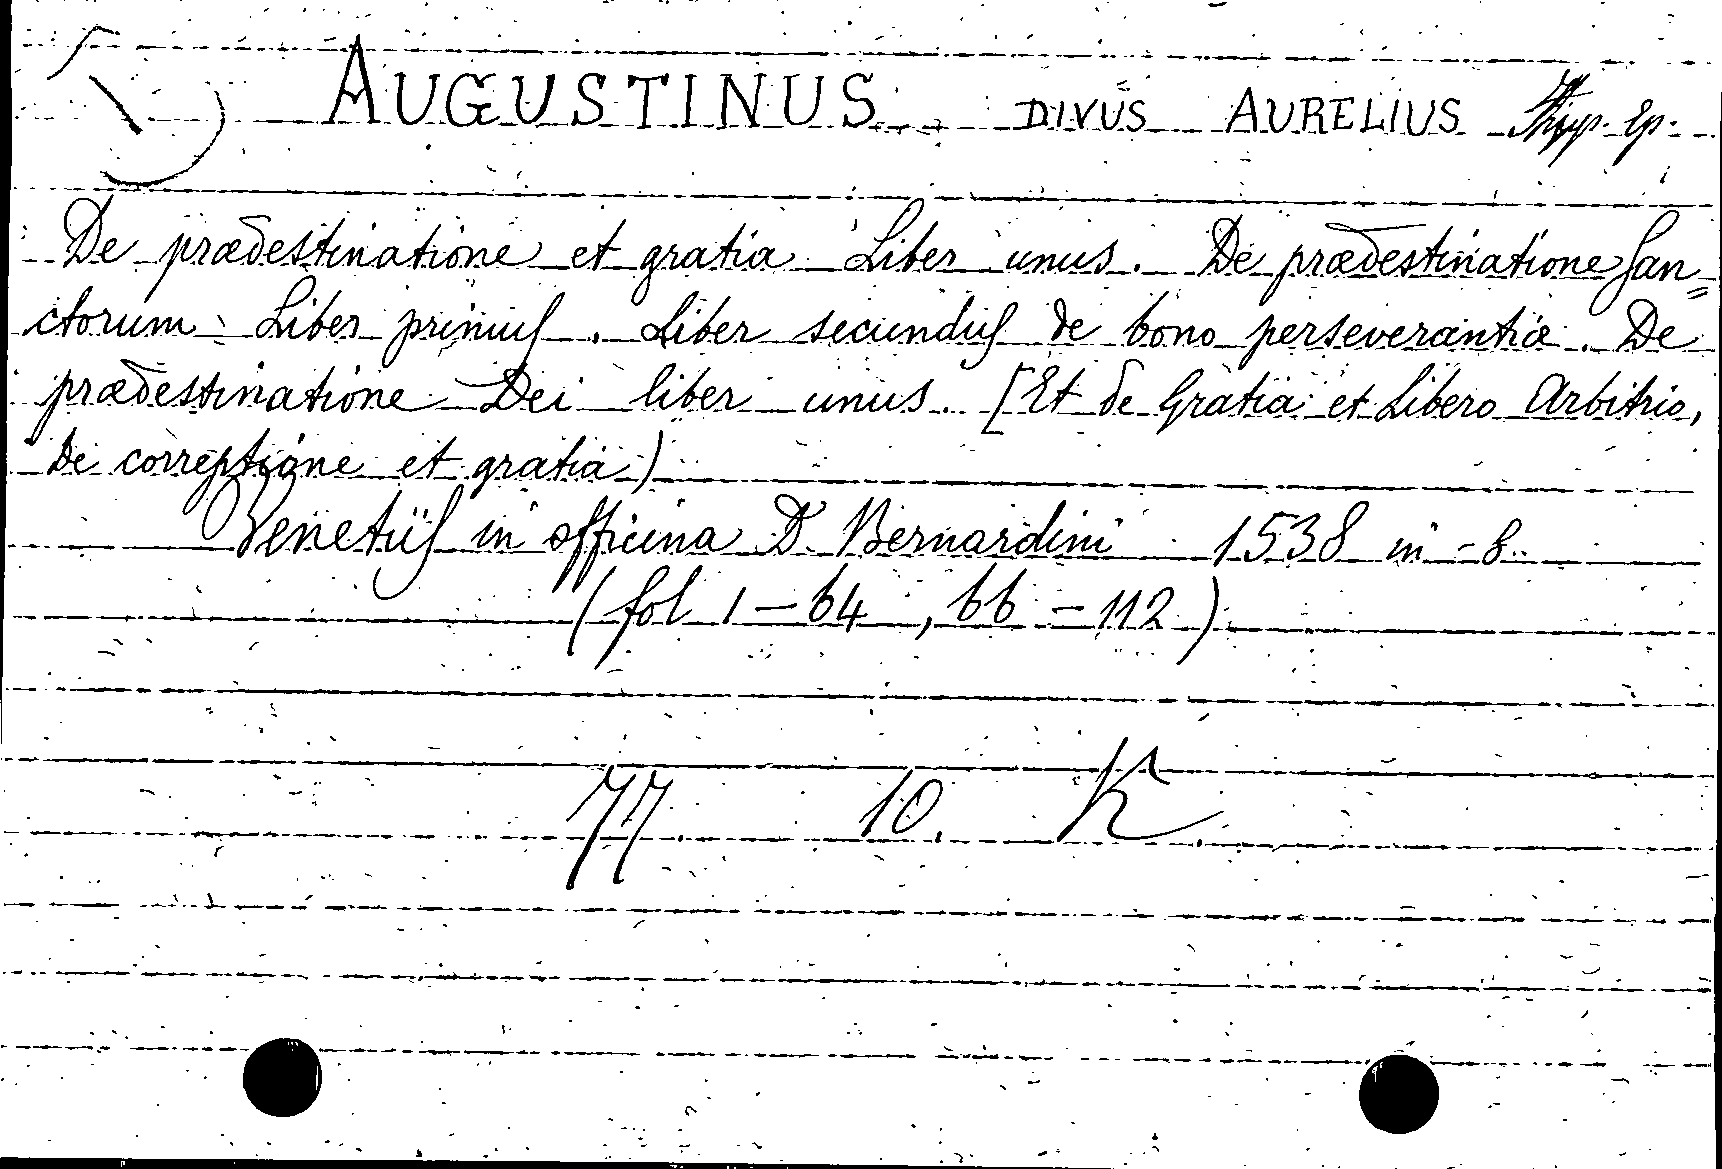 AUGUSTINUS, DIVUS AURELIUS Hipp. Ep.
De prædestinatione et gratia Liber unus. De prædestinatione San=
ctorum Liber primus. Liber secundus de bono perseverantiæ. De
prædestinatione Dei liber unus. [Et de Gratia et Libero Arbitrio,
De correptione et gratia)
Venetiis in officina D. Bernardini 1538 in-8.
(fol 1-64, 66-112)
77. 10. K.